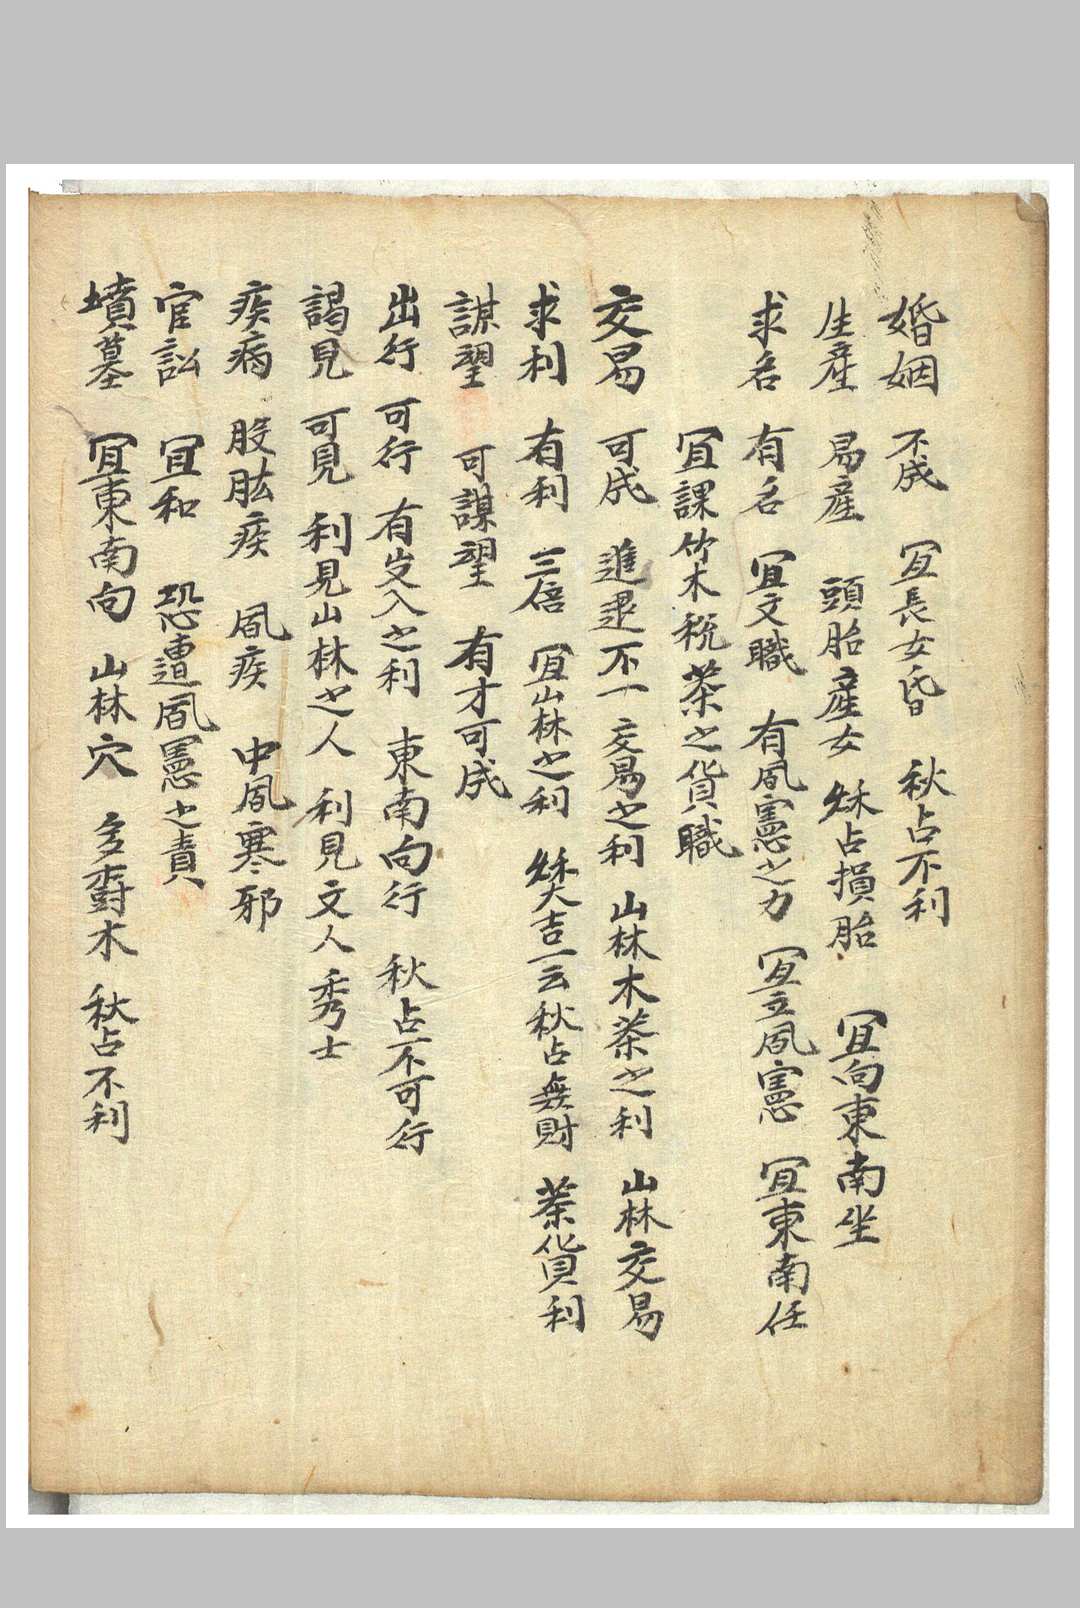 婚姻　不成　宜長女昏　秋占不利
生產　易產　頭胎產女　秌占損胎　宜向東南坐
求名　有名　宜文職　有風憲之力　宜立風憲　宜東南任
宜課竹木稅茶之貨職
交易　可成　進退不一　交易之利　山林木茶之利　山林交易
求利　有利　三倍　宜山林之利　秌大吉　一云秋占無財　茶貨利
謀望　可謀望　有才可成
出行　可行　有出入之利　東南向行　秋占不可行
謁見　可見　利見山林之人　利見文人秀士
疾病　股肱疾　風疾　中風寒邪
官訟　宜和　恐遭風憲之責
墳墓　宜東南向　山林穴　多樹木　秋占不利